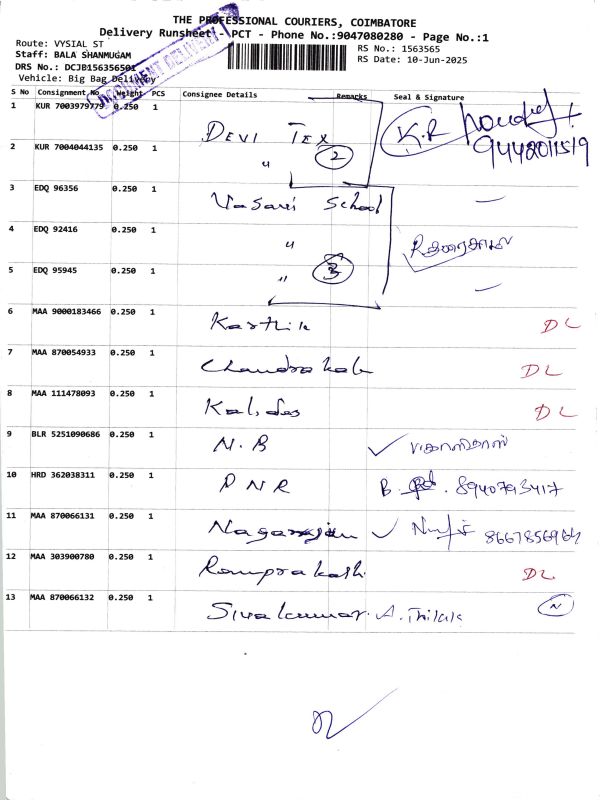 THE PROFESSIONAL COURIERS, COIMBATORE
Delivery Runsheet - PCT - Phone No.:9047080280 - Page No.:1
Route: VYSIAL ST
Staff: BALA SHANMUGAM
DRS No.: DCJB156356501
Vehicle: Big Bag Delivery
RS No.: 1563565
RS Date: 10-Jun-2025
DOCUMENT DELIVERY
S No Consignment No Weight PCS Consignee Details Remarks Seal & Signature
1 KUR 7003979779 0.250 1 DEVI TEX K.R 9448201519
2 KUR 7004044135 0.250 1 " 2
3 EDQ 96356 0.250 1 Vasavi School —
4 EDQ 92416 0.250 1 "
5 EDQ 95945 0.250 1 " 3 —
6 MAA 9000183466 0.250 1 Karthik DL
7 MAA 870054933 0.250 1 Chandrakala DL
8 MAA 111478093 0.250 1 Kalidas DL
9 BLR 5251090686 0.250 1 N.B
10 HRD 362038311 0.250 1 P N R B. 8940793417
11 MAA 870066131 0.250 1 Nagarajan
12 MAA 303900780 0.250 1 Ramprakash DL
13 MAA 870066132 0.250 1 Sivakumar. A. Thilak N